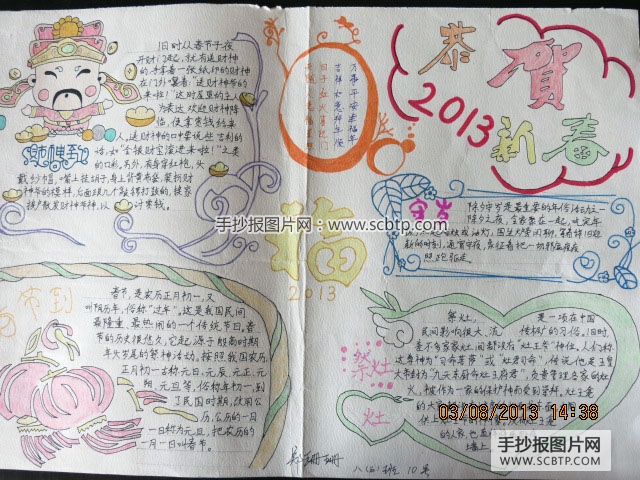 旧时从春节子夜
开财门起，就有送财神
的，手拿着一张纸印的财神
在门外嚷着："送财神爷的
来啦！"这时屋里的主人
为表达欢迎财神降
临，便拿赏钱给来
人，送财神的口中要说些吉利的
话，如"金银财宝滚进来啦！"之类
的口彩。另外，有身穿红袍，头
戴纱帽，嘴上挂胡子，身上背黄布袋，装扮财
神爷的模样，后面跟几个敲锣打鼓的，挨家
挨户散发财神爷像，以
讨赏钱。
万事平安幸福年
吉祥如意
恭
贺
2013
新春
守岁
除夕守岁是最重要的年俗活动之一
除夕之夜，全家聚在一起，吃完年
围坐火旁闲聊，等待辞旧迎
新的时刻，通宵守夜，象征着把一切邪瘟病疫
照跑驱走。
手抄报图片网
www.scbtp.com
福
2013
春节，是农历正月初一，又
叫阴历年，俗称"过年"。这是我国民间
最隆重、最热闹的一个传统节日。春
节的历史很悠久，它起源于殷商时期
年头岁尾的祭神活动。按照我国农历，
正月初一古称元日、元辰、元正、元
朔、元旦等，俗称年初一，到
了民国时期，改用公
历，公历的一月
一日称为元旦，把农历的
一月一日叫春节。
祭灶
灶
祭灶，是一项在中国
民间影响很大、流传极广的习俗。旧时，
差不多家家灶间都设有"灶王爷"神位。人们称
这尊神为"司命菩萨"或"灶君司命"，传说他是玉皇
大帝封的"九天东厨司命灶王府君"，负责管理各家的灶
火，被作为一家的保护神而受到崇拜。灶王龛
的大
03/08/2013 14:38
八(五)班 10号
手抄报图片网
WWW.SCBTP.COM